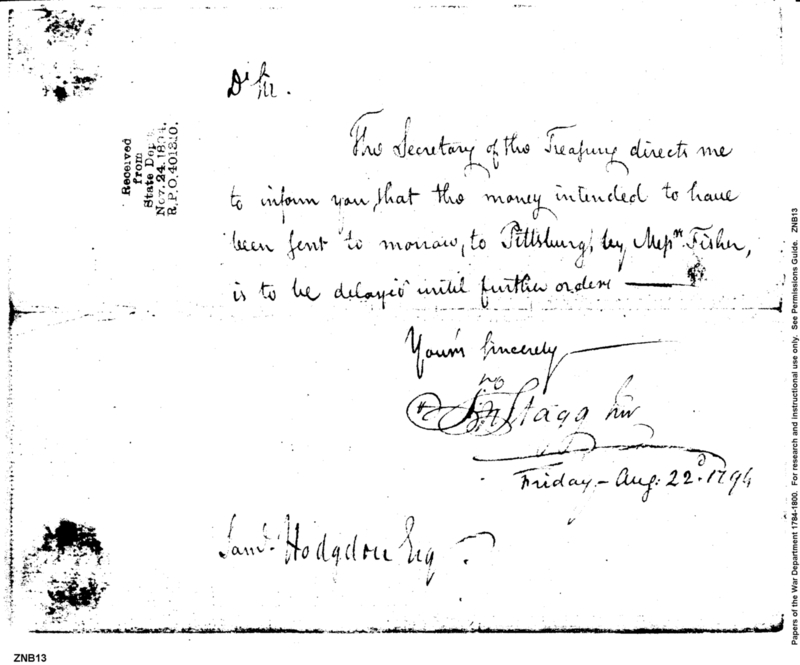 Dr Sir.
Received
from
State Dept.
Nov. 24. 1894.
R.P.O. 401310.
The Secretary of the Treasury directs me
to inform you, that the money intended to have
been sent to morrow, to Pittsburg, by Messrs. Fisher,
is to be delayed until further orders
Yours Sincerely
Jno Stagg Junr
Friday - Aug: 22d. 1794
Saml. Hodgdon Esq
ZNB13
Papers of the War Department 1784-1800. For research and instructional use only. See Permissions Guide. ZNB13